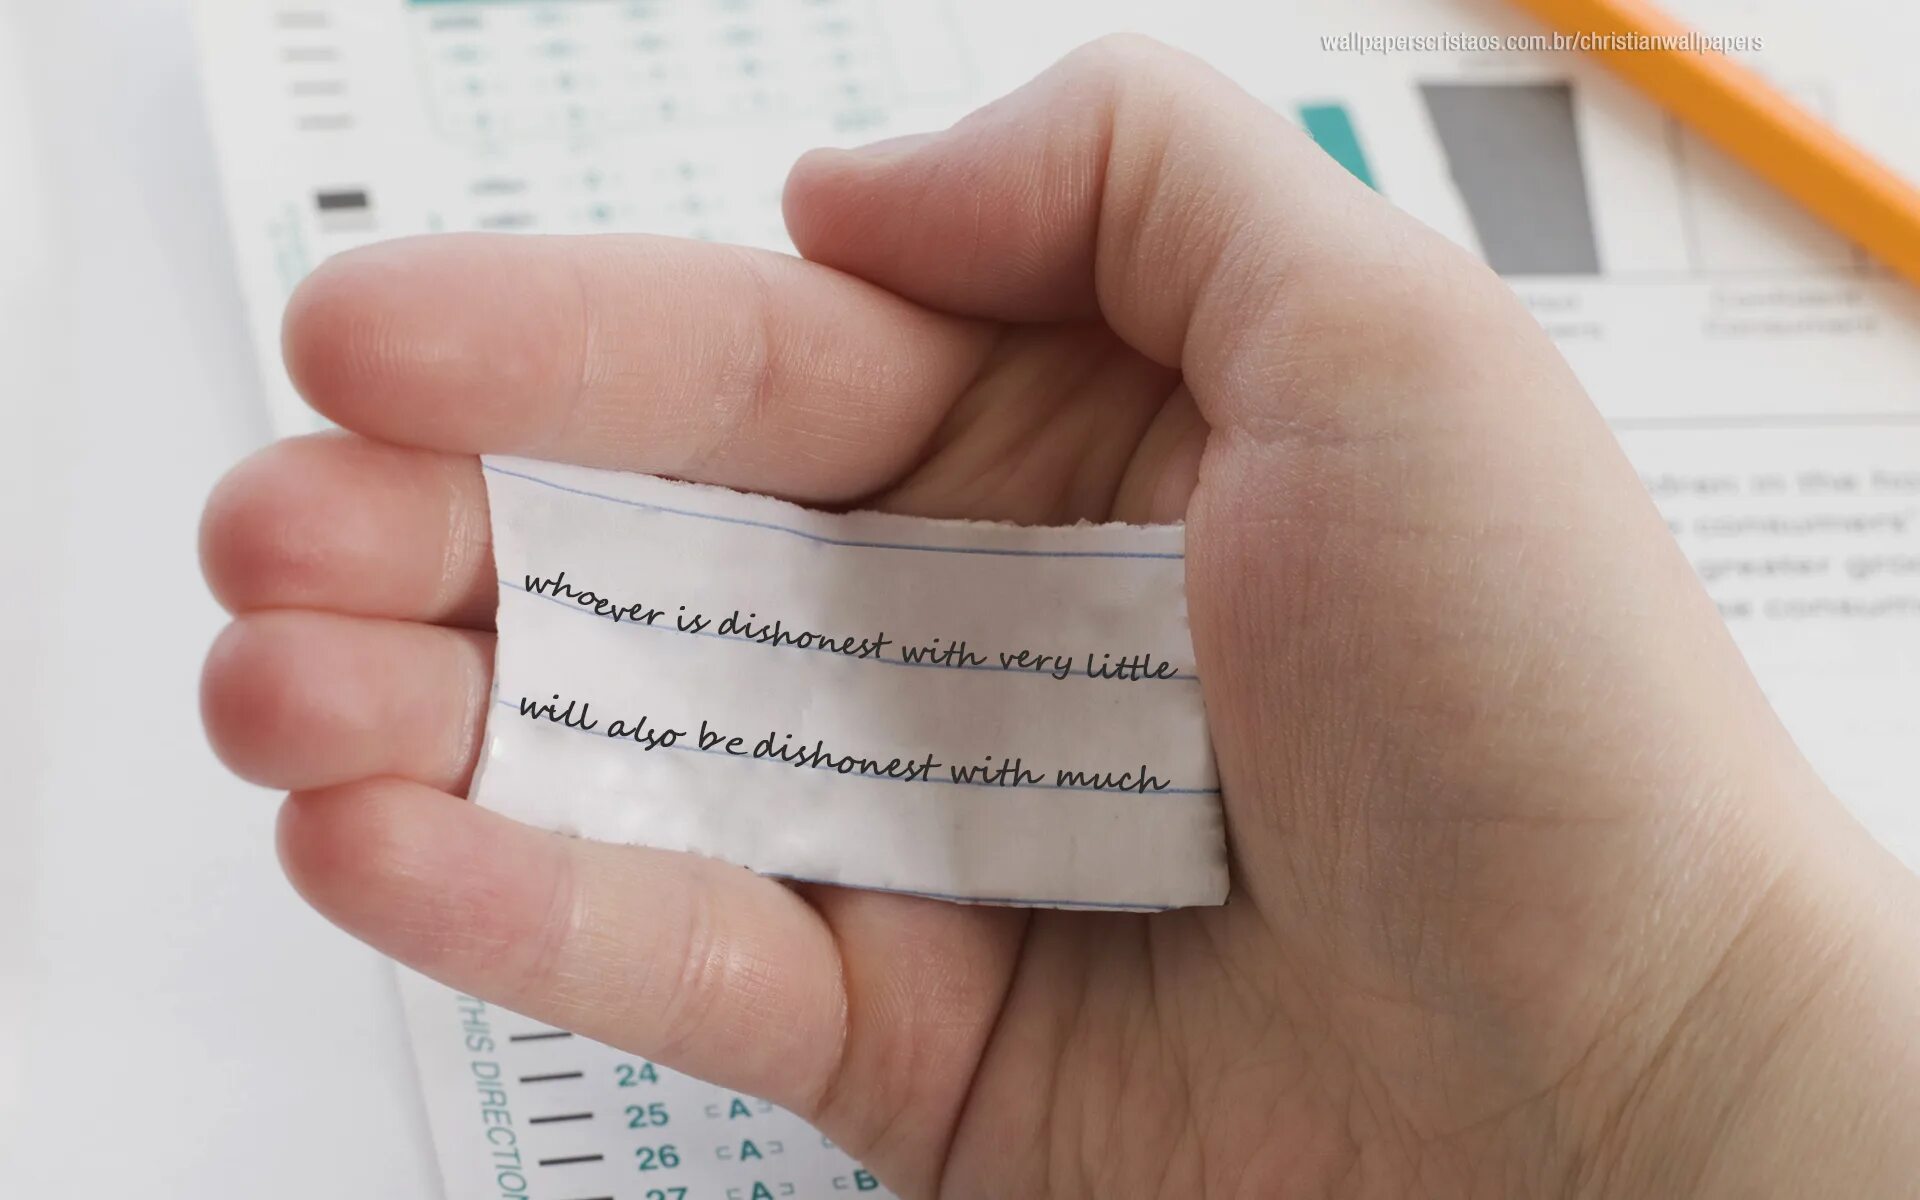 wallpaperscristaos.com.br/christianwallpapers
whoever is dishonest with very little
will also be dishonest with much
THIS DIRECTION
24
25 A
26 A
27 A B